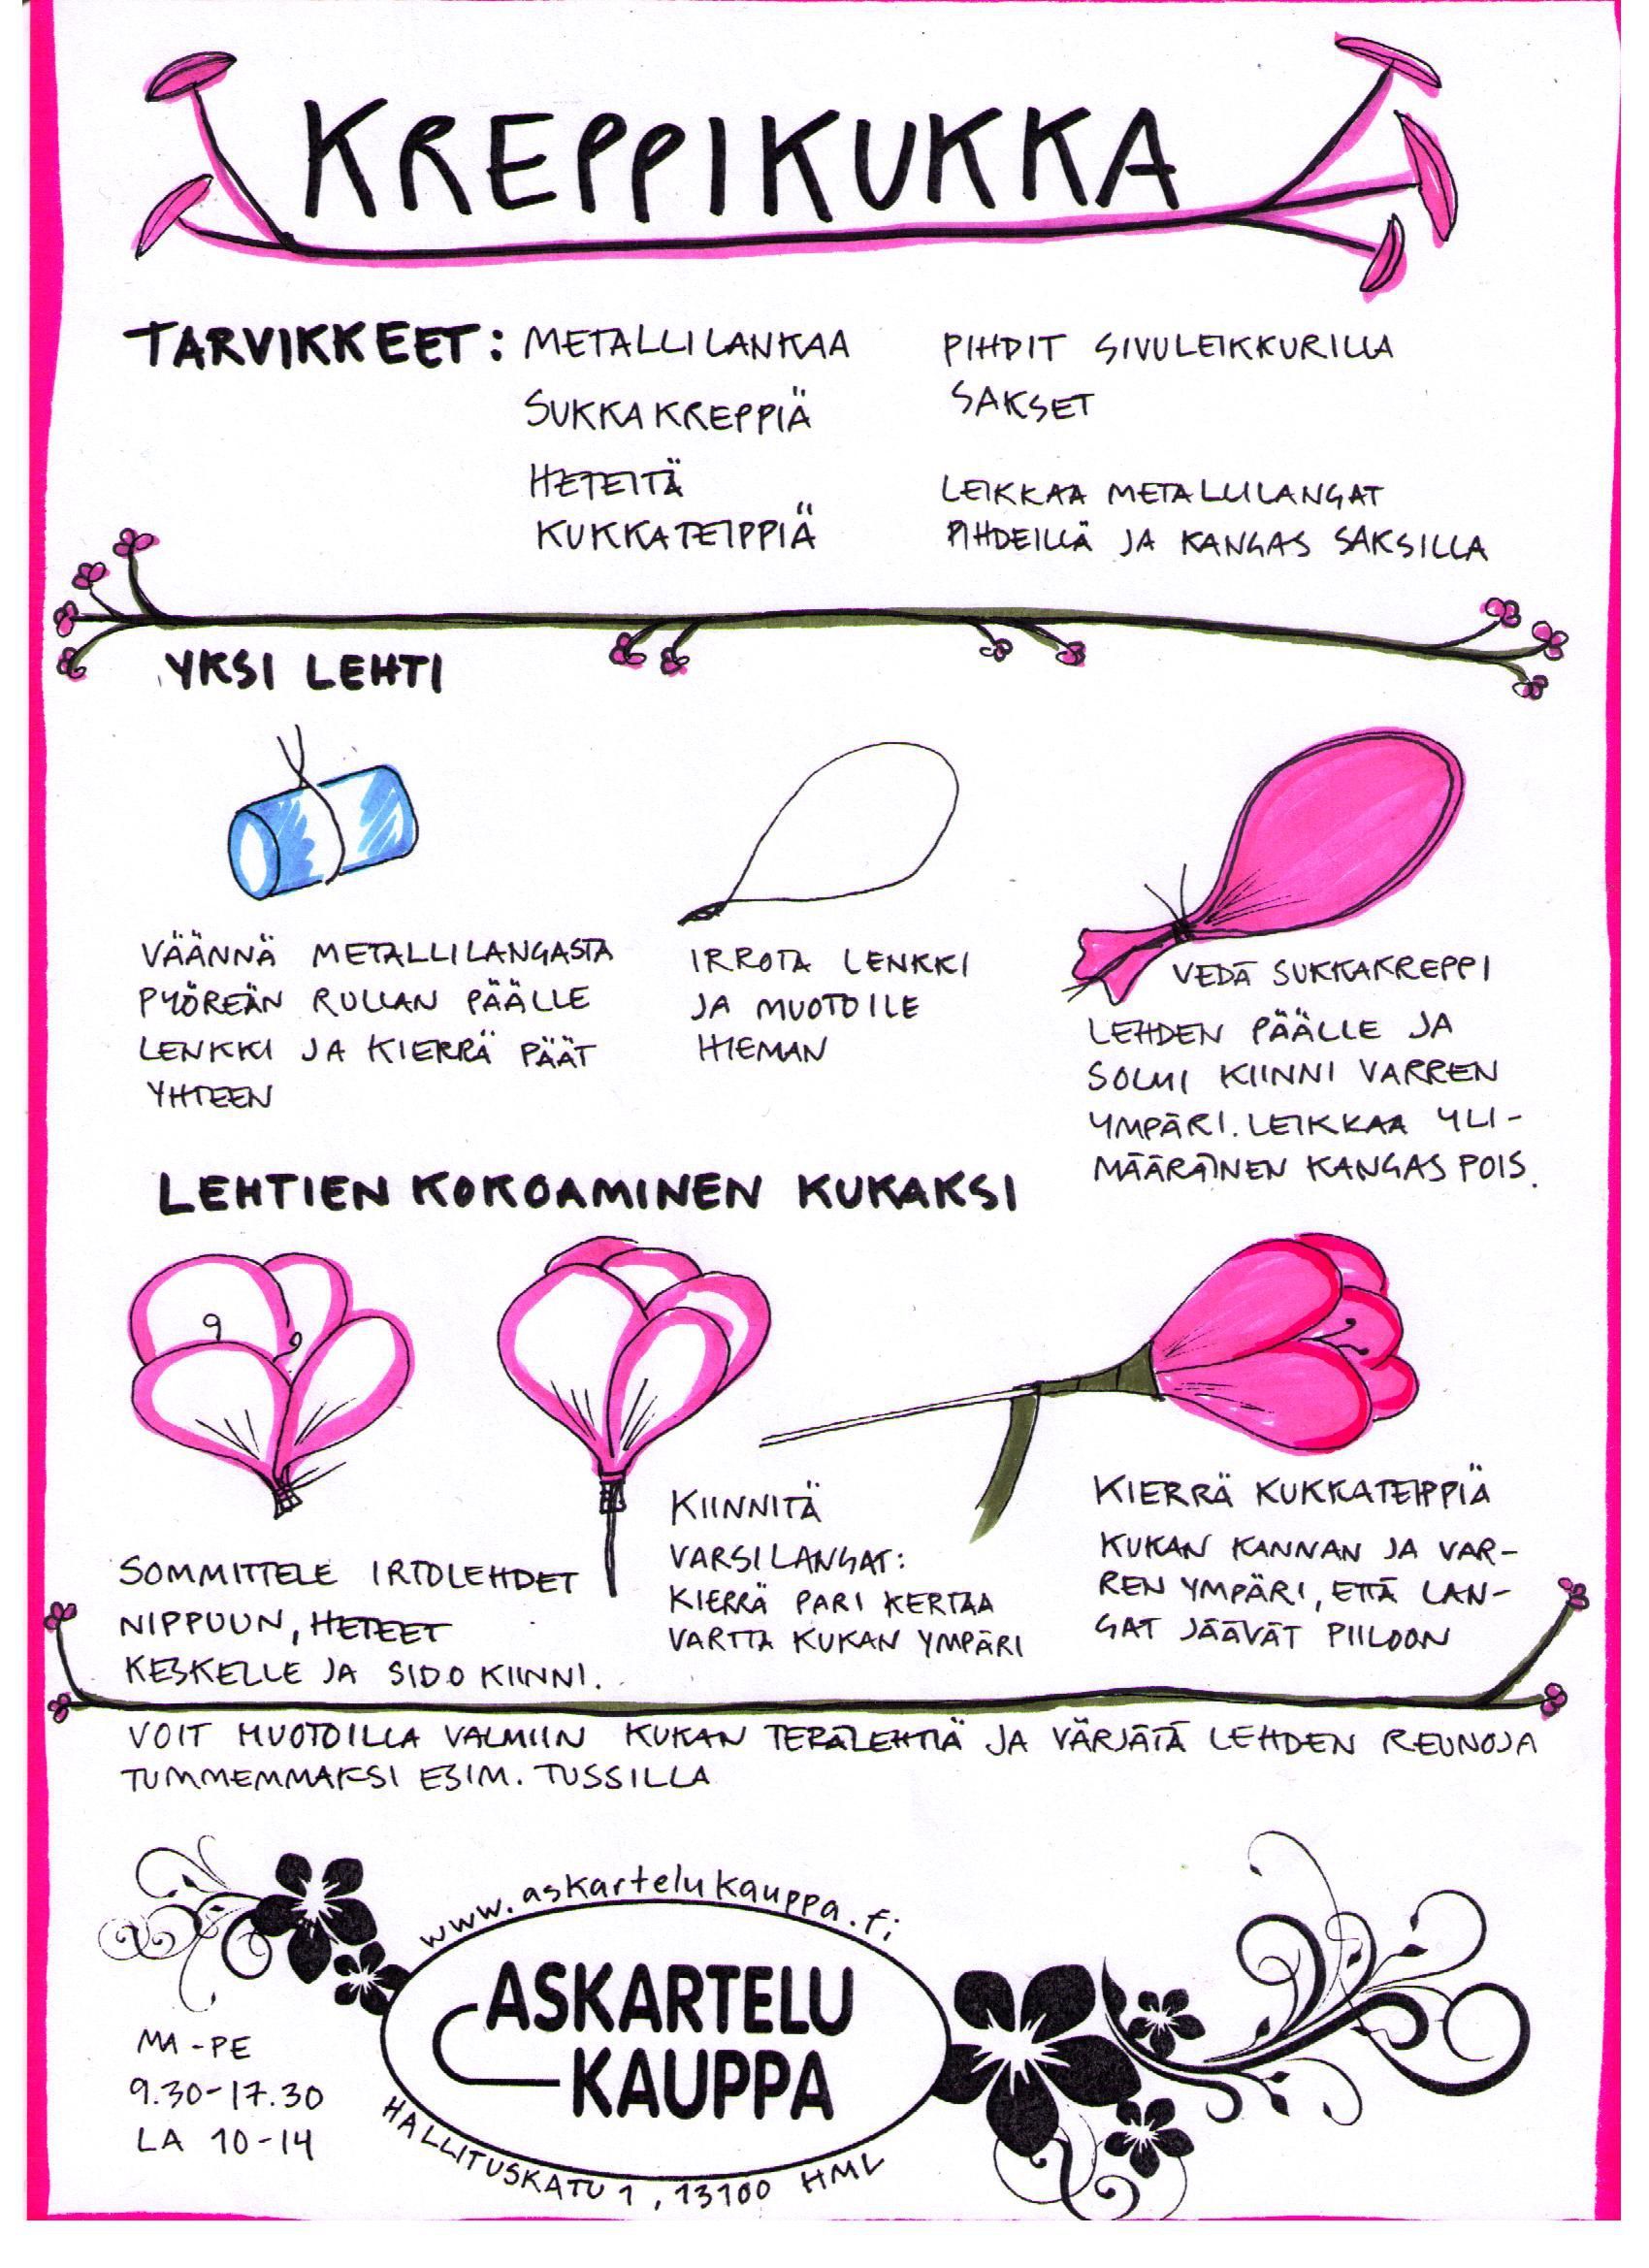 KREPPIKUKKA
TARVIKKEET: METALLILANKAA
SUKKAKREPPIÄ
HETEITÄ
KUKKATEIPPIÄ
PIHDIT SIVULEIKKURILLA
SAKSET
LEIKKAA METALLILANGAT
PIHDEILLÄ JA KANGAS SAKSILLA
YKSI LEHTI
VÄÄNNÄ METALLILANGASTA
PYÖREÄN RULLAN PÄÄLLE
LENKKI JA KIERRÄ PÄÄT
YHTEEN
IRROTA LENKKI
JA MUOTOILE
HIEMAN
VEDÄ SUKKAKREPPI
LEHDEN PÄÄLLE JA
SOLMI KIINNI VARREN
YMPÄRI. LEIKKAA YLI-
MÄÄRÄINEN KANGAS POIS.
LEHTIEN KOKOAMINEN KUKAKSI
SOMMITTELE IRTOLEHDET
NIPPUUN, HETEET
KESKELLE JA SIDO KIINNI.
KIINNITÄ
VARSILANGAT:
KIERRÄ PARI KERTAA
VARTTA KUKAN YMPÄRI
KIERRÄ KUKKATEIPPIÄ
KUKAN KANNAN JA VAR-
REN YMPÄRI, ETTÄ LAN-
GAT JÄÄVÄT PIILOON
VOIT MUOTOILLA VALMIIN KUKAN TERÄLEHTIÄ JA VÄRJÄTÄ LEHDEN REUNOJA
TUMMEMMAKSI ESIM. TUSSILLA
www.askartelukauppa.fi
ASKARTELU
KAUPPA
HALLITUSKATU 1, 13100 HML
MA-PE
9.30-17.30
LA 10-14